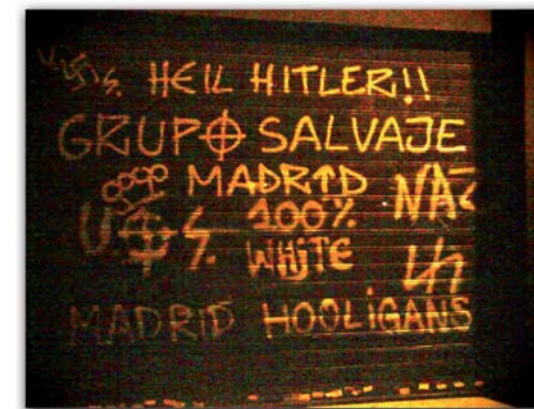 HEIL HITLER!!
GRUPO SALVAJE
MADRID
100%
WHITE
MADRID HOOLIGANS